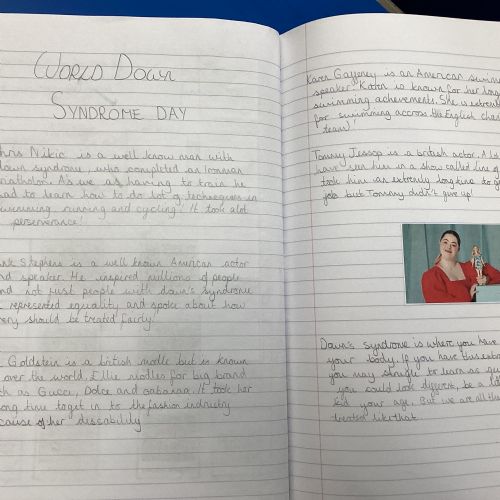 WORLD DOWN
SYNDROME DAY
hris Nikic is a well know man with
down syndrome, who completed as Ironman
As we as having to train he
had to learn how to do lot of techneques in
swimming, running and cycling! It took alot
perserverance!
nk Stephens is a well known American actor
nd speaker. He inspired millions of people
and not just people with down's syndrome
represented equality and spoke about how
ery should be treated fairly.
Goldstein is a british modle but is known
over the world. Ellie modles for big brand
ch as Gucci, Dolce and It took her
ong time to get in to the fashion industry
cause of her dissability
Karen Gaffeney is an American swimm
speaker. Karen is known for her long
swimming acheivements. She is extrem
for swimming accross the English chan
team)!
Tommy Jessop is a british actor. A lo
have seen him in a show called line of
took him an extremly long time to g
job but Tommy didn't give up!
Down's Syndrome is where you have
your body. If you have this extra
you may strugle to learn as qui
you could look different, be a lo
kid your age. But we are all the
treated like that